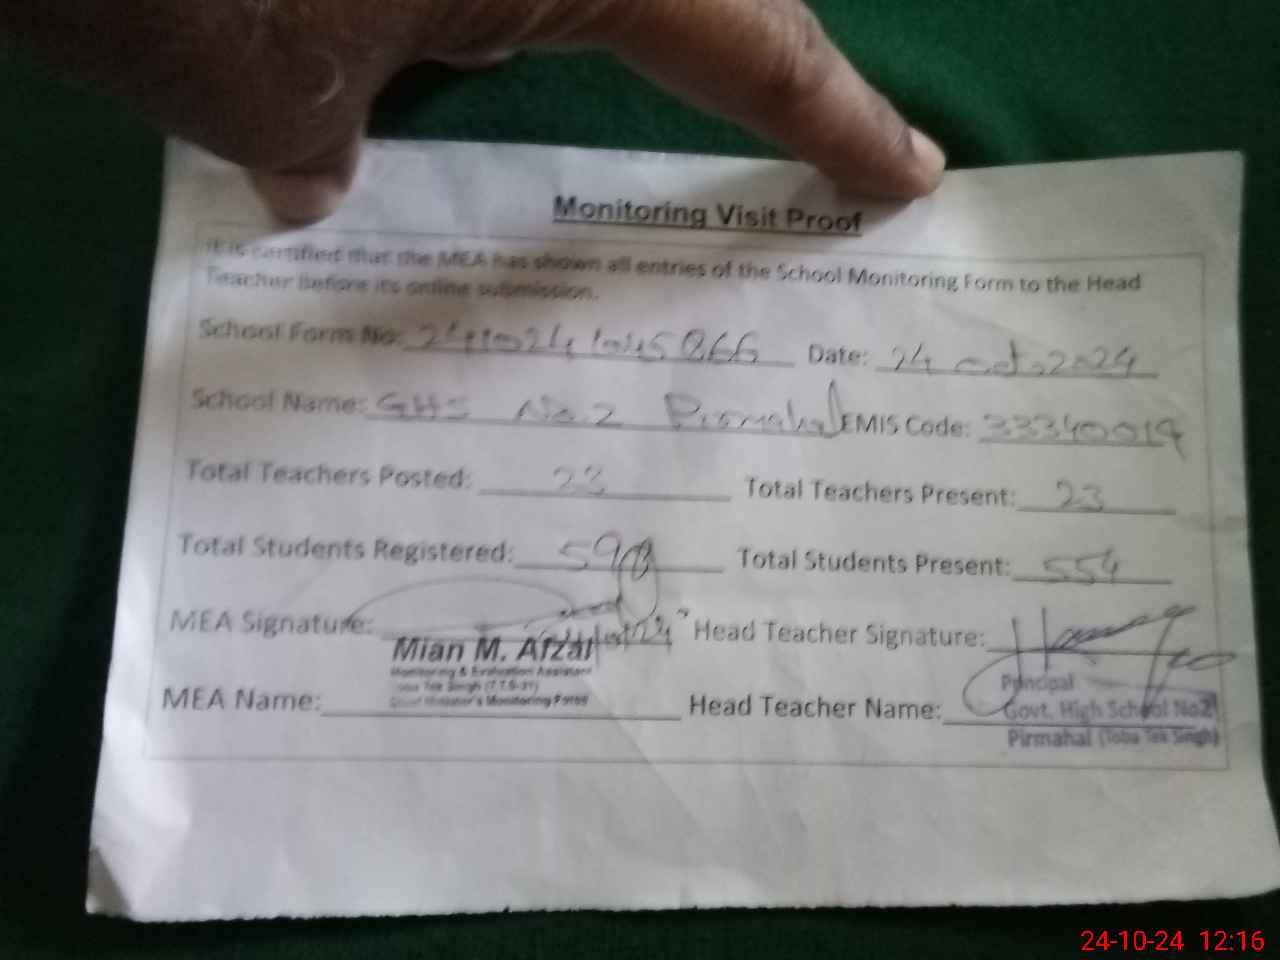 Monitoring Visit Proof
It is certified that the MEA has shown all entries of the School Monitoring Form to the Head
Teacher before its online submission.
School Form No: Date: 24 oct, 2024
School Name: GHS No. 2 Pirmahal EMIS Code: 33340019
Total Teachers Posted: 23 Total Teachers Present: 23
Total Students Registered: 598 Total Students Present: 554
MEA Signature: Head Teacher Signature:
Mian M. Afzal
Monitoring & Evaluation Assistant
Toba Tek Singh (T.T.S-31)
Chief Minister's Monitoring Force
MEA Name: Head Teacher Name:
Principal
Govt. High School No2
Pirmahal (Toba Tek Singh)
24-10-24 12:16